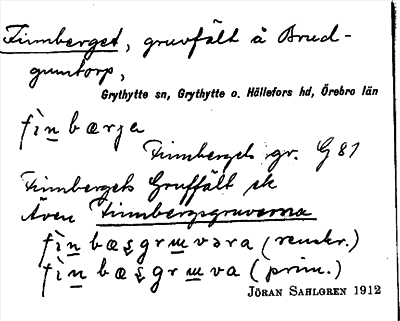 Finnberget, gruvfält å Brud-
gumtorp,
Grythytte sn, Grythytte o. Hällefors hd, Örebro län
fìn bærja
Finnbergets gr. G 81
Finnbergets Gruffält ek
Även Finnbergsgruvorna
fìn bæsgrɯvəra (renskr.)
fìn bæsgrɯva (prim.)
JÖRAN SAHLGREN 1912